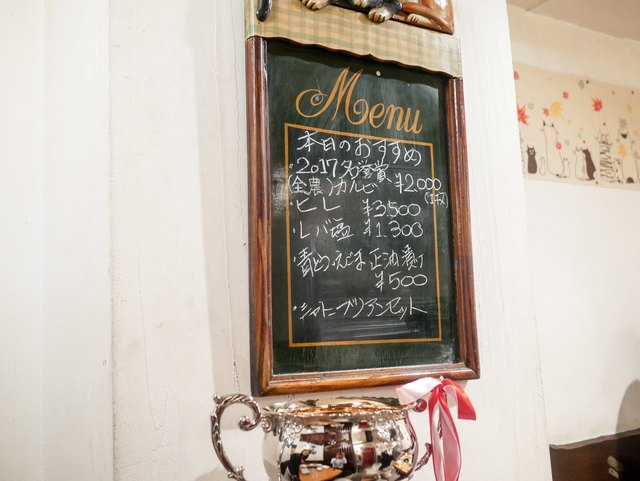 Menu
本日のおすすめ
・2017名誉賞
(全農)カルビ ¥2000
(1枚)
・ヒレ ¥3500
・レバ塩 ¥1,300
・青とう.えごま 正油漬け
¥500
・シャトーブリアンセット